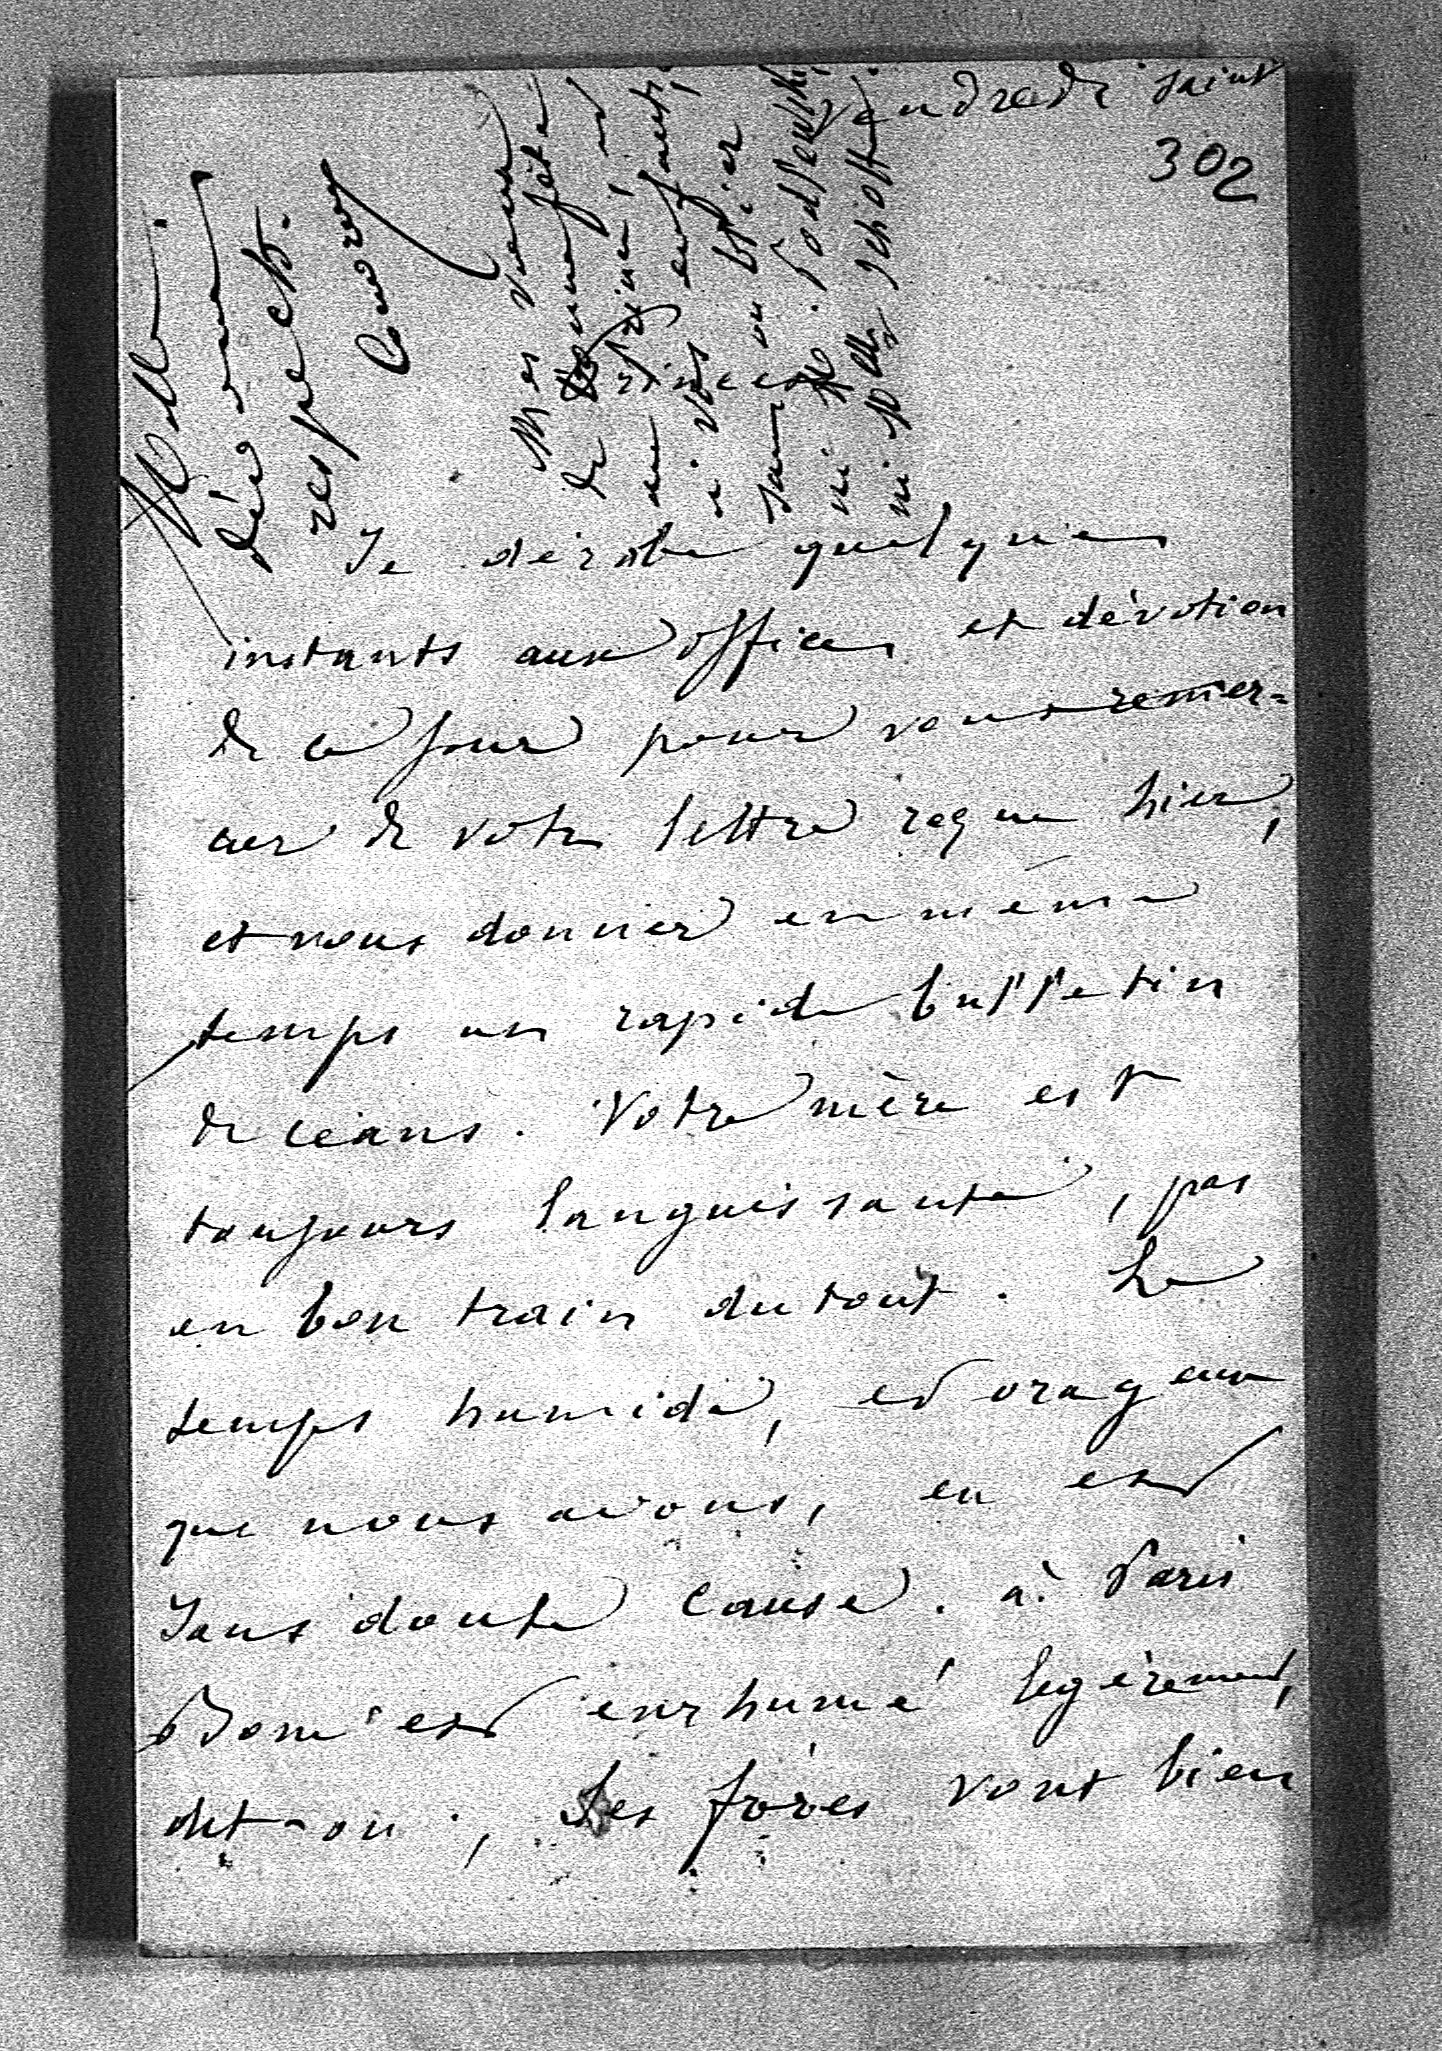 Vendredi saint
302
Je dérobe quelques
instants aux offices et dévotion
de ce jour pour vous remer=
cier de votre lettre reçue hier,
et vous donner en même
temps un rapide bulletin
de céans. Votre mère est
toujours languissante, pas
en bon train du tout. Le
temps humide, et orageux
que nous avons, en est
sans doute cause. à Paris
est enrhumé légèrement,
dit-on; Ses frères vont bien
Mes vœux
de bonne fête
au Prince, à la Princesse
à vos enfants,
sans oublier
ni M.
ni Melle
Mille
respects.